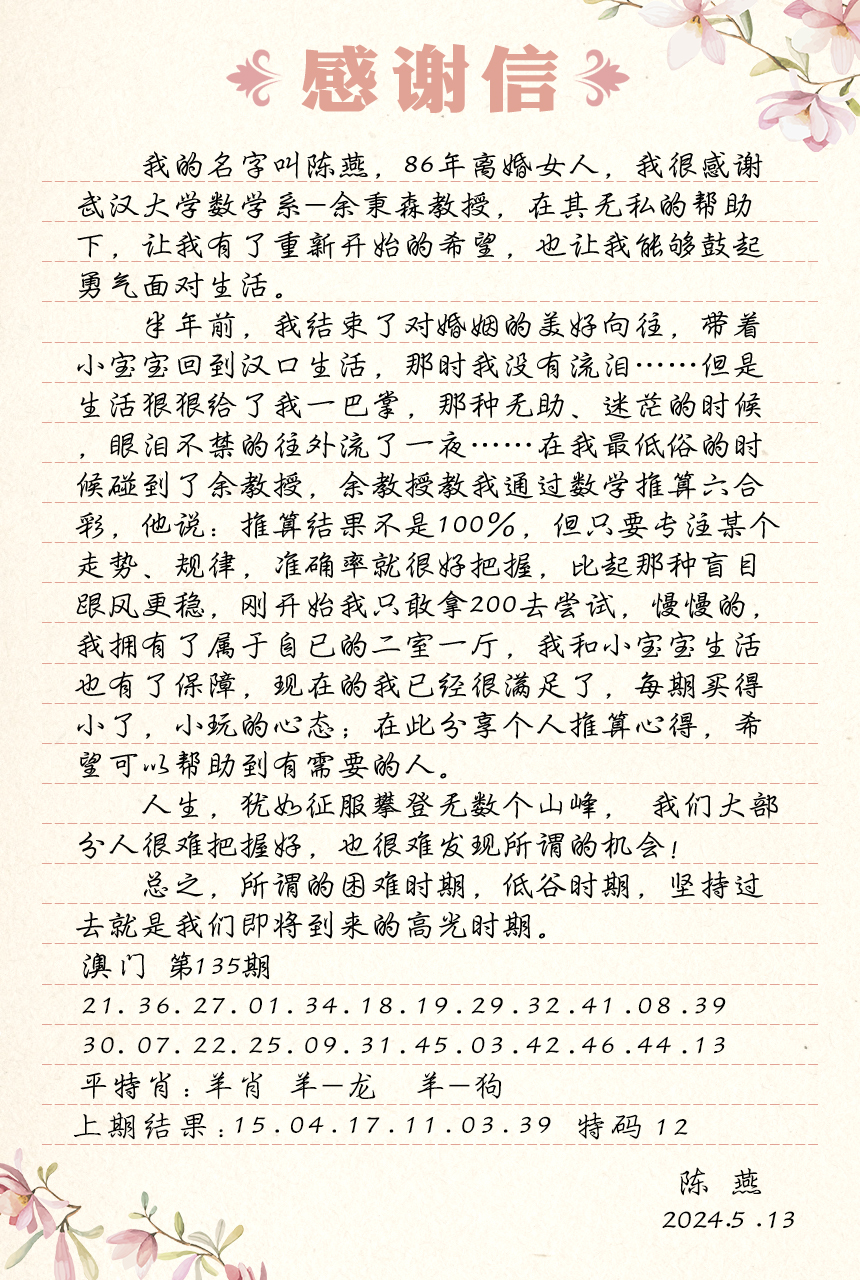 感谢信
我的名字叫陈燕，86年离婚女人，我很感谢
武汉大学数学系—余秉森教授，在其无私的帮助
下，让我有了重新开始的希望，也让我能够鼓起
勇气面对生活。
半年前，我结束了对婚姻的美好向往，带着
小宝宝回到汉口生活，那时我没有流泪……但是
生活狠狠给了我一巴掌，那种无助、迷茫的时候
，眼泪不禁的往外流了一夜……在我最低俗的时
候碰到了余教授，余教授教我通过数学推算六合
彩，他说：推算结果不是100%，但只要专注某个
走势、规律，准确率就很好把握，比起那种盲目
跟风更稳，刚开始我只敢拿200去尝试，慢慢的，
我拥有了属于自己的二室一厅，我和小宝宝生活
也有了保障，现在的我已经很满足了，每期买得
小了，小玩的心态；在此分享个人推算心得，希
望可以帮助到有需要的人。
人生，犹如征服攀登无数个山峰， 我们大部
分人很难把握好，也很难发现所谓的机会！
总之，所谓的困难时期，低谷时期，坚持过
去就是我们即将到来的高光时期。
澳门 第135期
21.36.27.01.34.18.19.29.32.41.08.39
30.07.22.25.09.31.45.03.42.46.44.13
平特肖：羊肖 羊—龙 羊—狗
上期结果：15.04.17.11.03.39 特码 12
陈 燕
2024.5.13